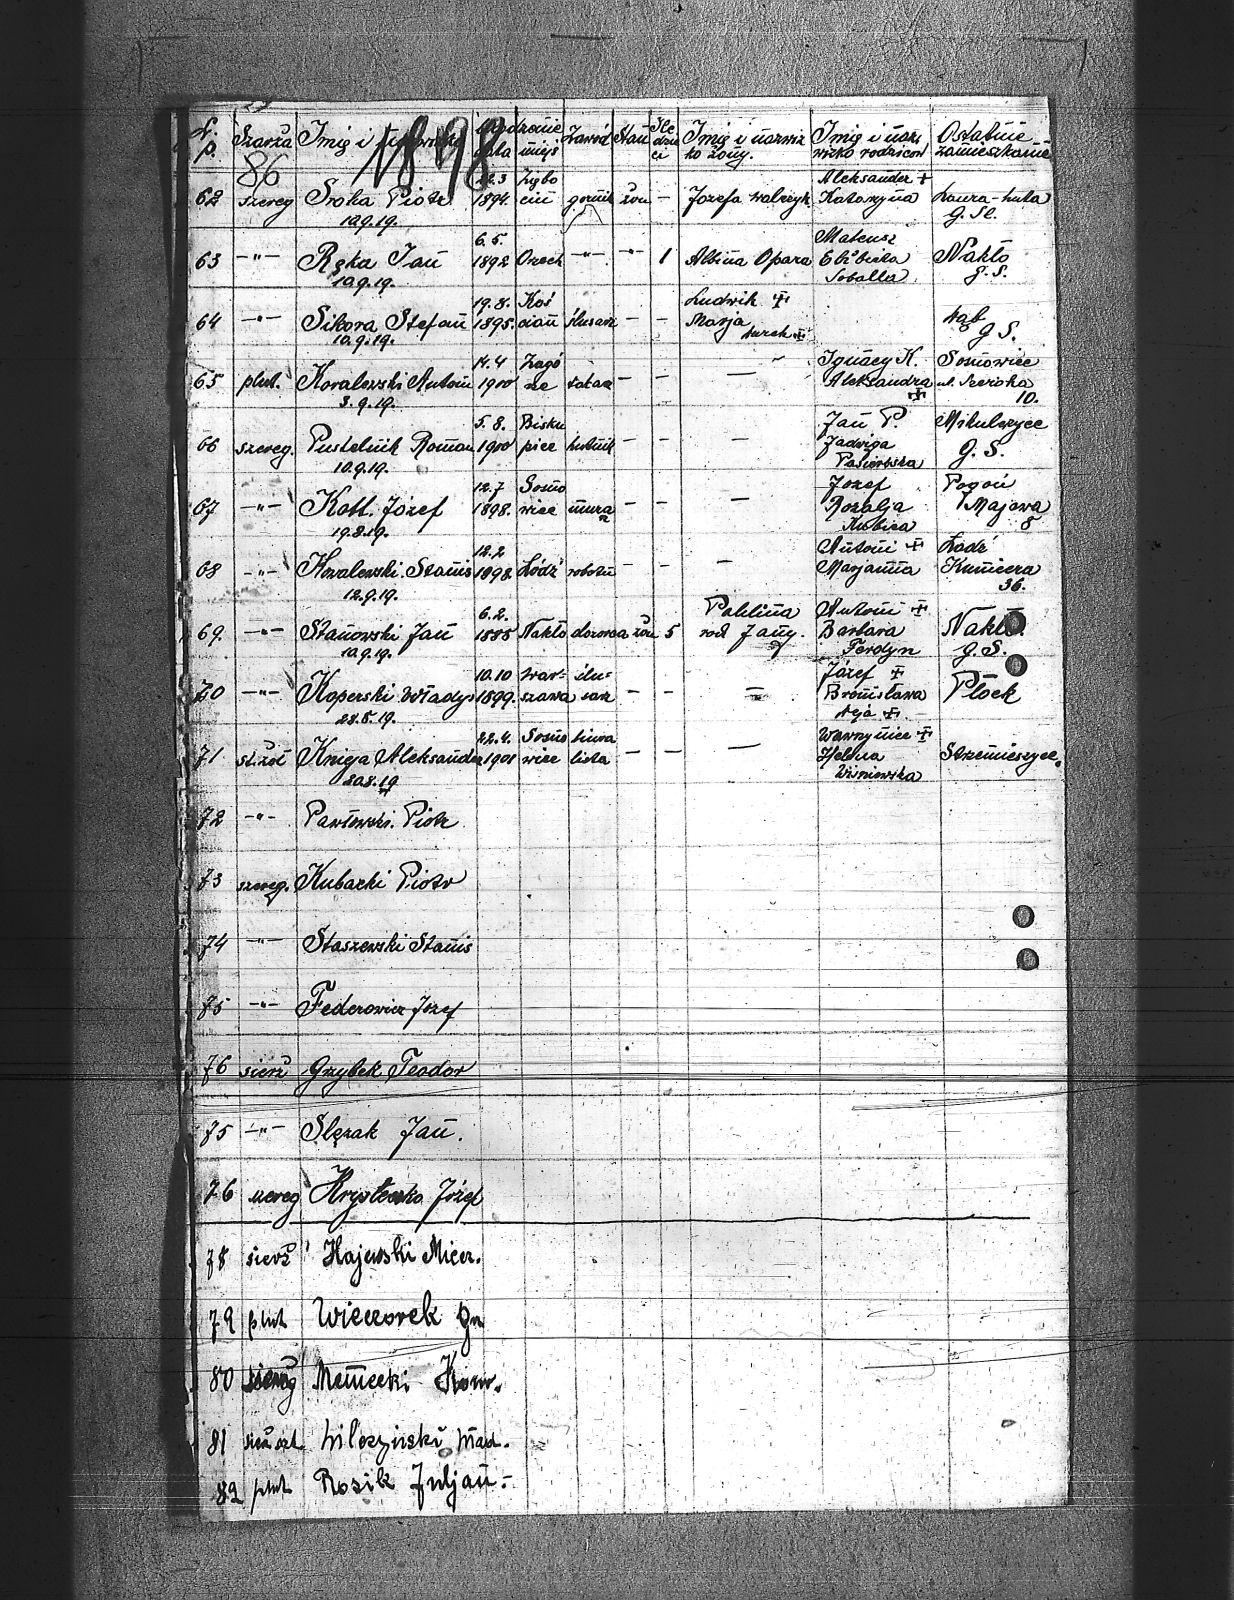 L. p. Szarża Imię i Urodzenie Zawód Stan Ile dzieci Imię i nazwisko żony. Imię i nazwisko rodziców Ostatnie zamieszkanie
86 1898
62 szereg Sroka Piotr 1894. górnik żon — Józefa Walczyk Aleksander + Katarzyna Laura-huta G. Śl.
10.9.19.
63 —"— Ręka Jan 6.5. 1892 Orzech —"— —"— 1 Albina Opara Mateusz Elżbieta Soballa Nakło g. S.
10.9.19.
64 —"— Sikora Stefan 19.8. 1895. ślusarz — — Ludwik + Marja + G S.
10.9.19.
65 plut. Kovalewski Antoni 14.4 1900 Zagórze — — — Ignacy K. Aleksandra + Sosnowiec ul. Szeroka 10.
3.9.19.
66 szereg. Pustelnik Roman 5.8. 1900 Biskupice hutnik — — — Jan P. Jadwiga Mikulczyce G. S.
10.9.19.
67 —"— Kott. Józef 12.7 1898. Sosnowiec — — — Józef Rozalja Kubica Pogoń Majowa 8
19.8.19.
68 —"— Kovalewski. Stanis 12.2 1898. Łódź robotn — — — Antoni + Marjanna Łódź 36.
12.9.19.
69. —"— Stanowski Jan 6.2. 1885 Nakło dozorca żon 5 Paulina Antoni + Barbara Ferdyn Nakło. g. S.
10.9.19.
70 —"— Koperski Władys 10.10 1899. Warszawa ślusarz — — — Józef + Bronisława + Płock
28.8.19.
71 Knieja Aleksander 22.4. 1901 Sosnowiec — — — Wawrzyniec + Helena Wiśniewska Strzemieszyce.
20.8.19
72 —"— Pawłowski. Piotr
73 szereg. Kubacki Piotr
74 —"— Staszewski Stanis
75 —"— Federowicz Józef
76 sierż Grzybek Teodor
75 —"— Ślęzak Jan.
76 szereg Józef
78 sierż Majewski Miecz.
79 plut Wieczorek
80 Konr.
81 Wilczyński Wład.
82 plut Rosik Juljan.-